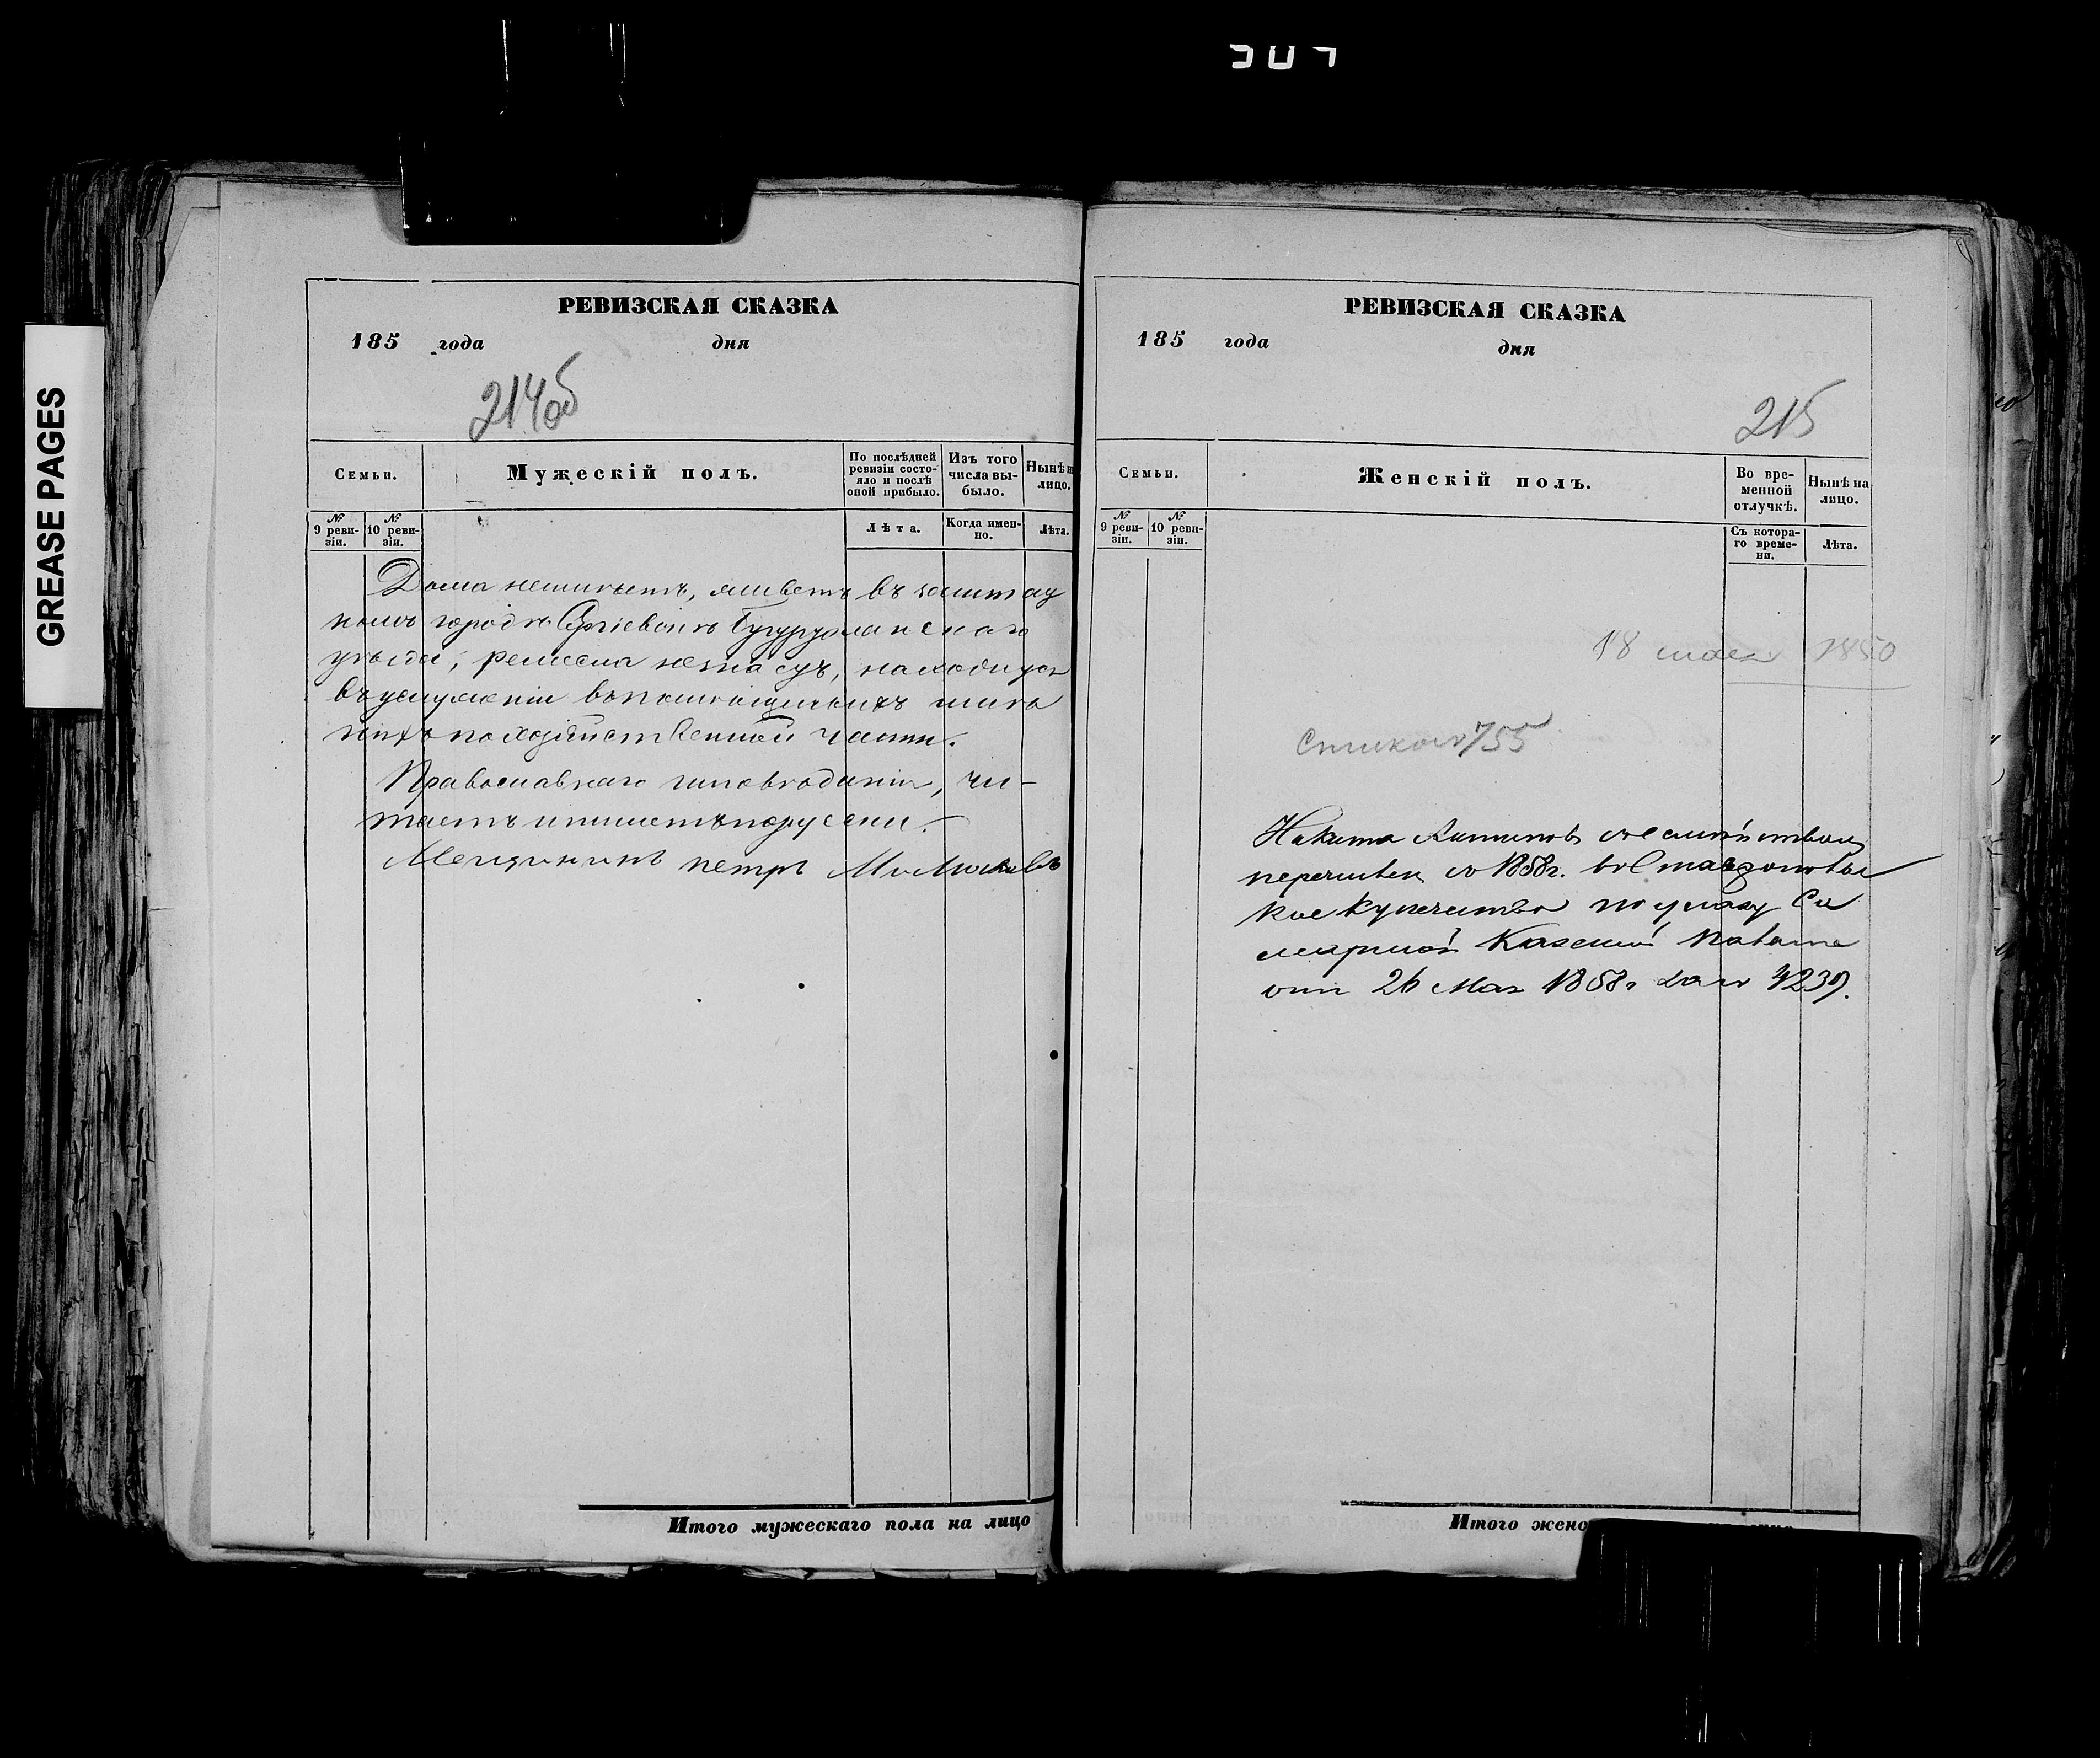 GREASE PAGES
РЕВИЗСКАЯ СКАЗКА
185 года дня
214об
Семьи.
Мужескій полъ.
По послѣдней ревизіи состояло и послѣ оной прибыло.
Изъ того числа выбыло.
Нынѣ н лицо.
№ 9 ревизіи.
№ 10 ревизіи.
Лѣта.
Когда именно.
Лѣта.
Дома неимѣетъ, живетъ въ заштат
номъ городѣ Сергіевскѣ Бугурусланскаго
уѣзда, ремесла незнаетъ, находится
въ услуженіи
по хозяйственной части.
Православнаго исповѣданія, чи-
таетъ и пишетъ по русски.
Мещанинъ петръ
Итого мужескаго пола на лицо
РЕВИЗСКАЯ СКАЗКА
185 года дня
215
Семьи.
Женскій полъ.
Во временной отлучкѣ.
Нынѣ на лицо.
№ 9 ревизіи.
№ 10 ревизіи.
Съ котораго времени.
Лѣта.
18 1850
755
Никита Антиповъ съ семействомъ
перечисленъ съ 1858г. въ Ставропольс
кое купечество по указу Са
марской Казенной Палаты
отъ 26 Мая 1858г за № 4239.
Итого женс